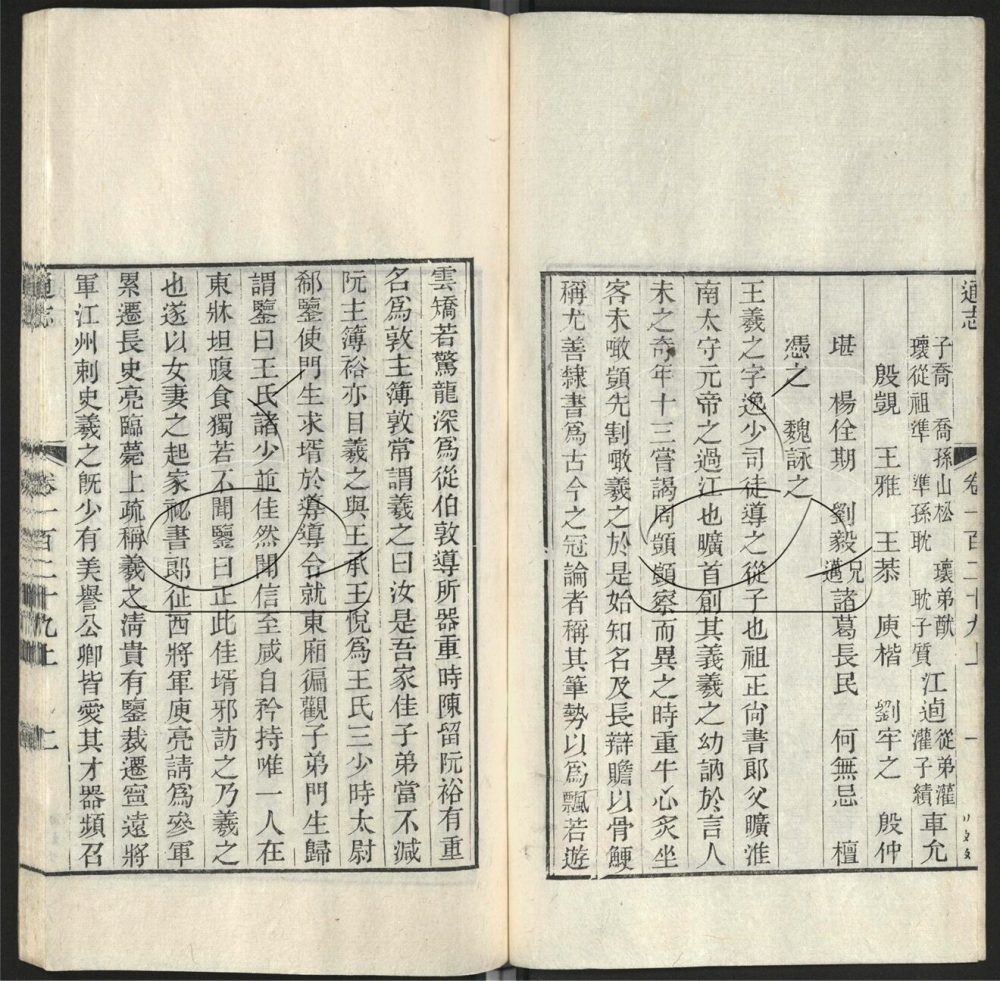 通志 卷一百二十九上 一
子喬 喬孫山松 瓌弟猷 江逌 從弟灌 車允
瓌從祖準 準孫耽 耽子質 灌子績
殷覬 王雅 王恭 庾楷 劉牢之 殷仲
堪 楊佺期 劉毅 兄邁 諸葛長民 何無忌 檀
憑之 魏詠之
王羲之字逸少司徒導之從子也祖正尚書郎父曠淮
南太守元帝之過江也曠首創其義羲之幼訥於言人
未之奇年十三嘗謁周顗顗察而異之時重牛心炙坐
客未噉顗先割噉羲之於是始知名及長辯贍以骨鯁
稱尤善隸書爲古今之冠論者稱其筆勢以爲飄若遊
雲矯若驚龍深爲從伯敦導所器重時陳留阮裕有重
名爲敦主簿敦常謂羲之曰汝是吾家佳子弟當不減
阮主簿裕亦目羲之與王承王悅爲王氏三少時太尉
郗鑒使門生求壻於導導令就東廂徧觀子弟門生歸
謂鑒曰王氏諸少並佳然聞信至咸自矜持唯一人在
東牀坦腹食獨若不聞鑒曰正此佳壻邪訪之乃羲之
也遂以女妻之起家祕書郎征西將軍庾亮請爲參軍
累遷長史亮臨薨上疏稱羲之淸貴有鑒裁遷寧遠將
軍江州刺史羲之既少有美譽公卿皆愛其才器頻召
通志 卷一百二十九上 二